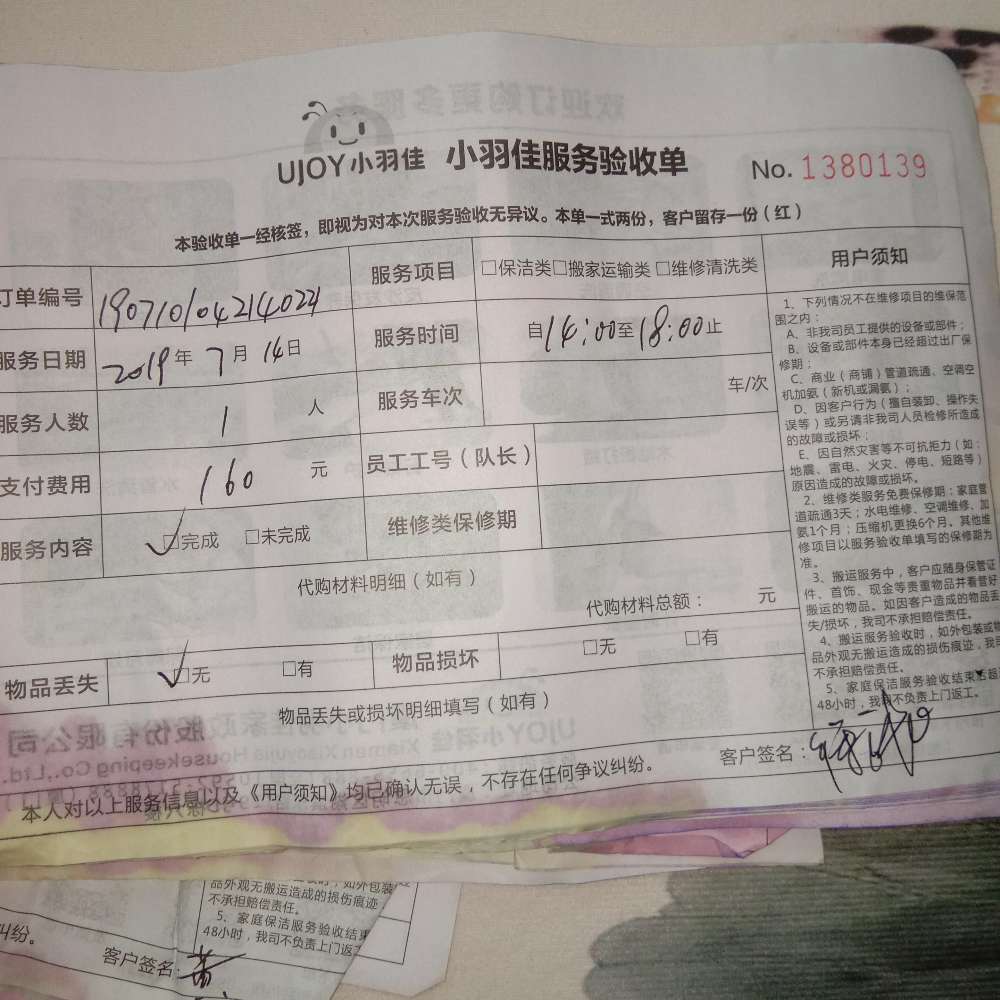 UJOY小羽佳 小羽佳服务验收单 No. 1380139
本验收单一经核签，即视为对本次服务验收无异议。本单一式两份，客户留存一份（红）
订单编号 19071010421402
服务项目 □保洁类□搬家运输类□维修清洗类
服务日期 2019年7月14日
服务时间 自14:00至18:00止
服务人数 1 人
服务车次 车/次
支付费用 160 元
员工工号（队长）
服务内容 □完成 □未完成
维修类保修期
代购材料明细（如有）
代购材料总额： 元
物品丢失 □无 □有
物品损坏 □无 □有
物品丢失或损坏明细填写（如有）
本人对以上服务信息以及《用户须知》均已确认无误，不存在任何争议纠纷。
客户签名：
用户须知
1、下列情况不在维修项目的维保范
围之内：
A、非我司员工提供的设备或部件；
B、设备或部件本身已经超过出厂保
修期；
C、商业（商铺）管道疏通、空调空
机加氨（新机或漏氨）；
D、因客户行为（擅自装卸、操作失
误等）或另请非我司人员检修所造成
的故障或损坏；
E、因自然灾害等不可抗拒力（如：
地震、雷电、火灾、停电、短路等）
原因造成的故障或损坏。
2、维修类服务免费保修期：家庭管
道疏通3天；水电维修、空调维修、加
氨1个月；压缩机更换6个月。其他维
修项目以服务验收单填写的保修期为
准。
3、搬运服务中，客户应随身保管证
件、首饰、现金等贵重物品并看管好
搬运的物品。如因客户造成的物品丢
失/损坏，我司不承担赔偿责任。
4、搬运服务验收时，如外包装或物
品外观无搬运造成的损伤痕迹，我司
不承担赔偿责任。
5、家庭保洁服务验收结束后超过
48小时，我司不负责上门返工。
品外观无搬运造成的损伤痕迹
不承担赔偿责任。
5、家庭保洁服务验收结束
48小时，我司不负责上门返工
纠纷。
客户签名：黄